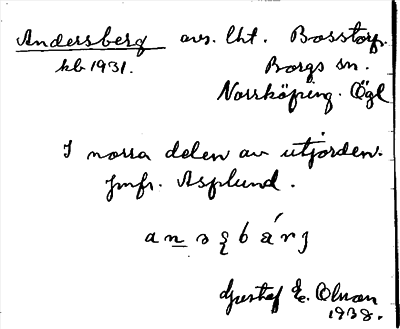 Andersberg avs. lht. Bosstorp.
kb 1931. Borgs sn.
Norrköping. Ögl
I norra delen av utjorden.
Jmfr. Asplund.
Gustaf E. Olsson
1938.